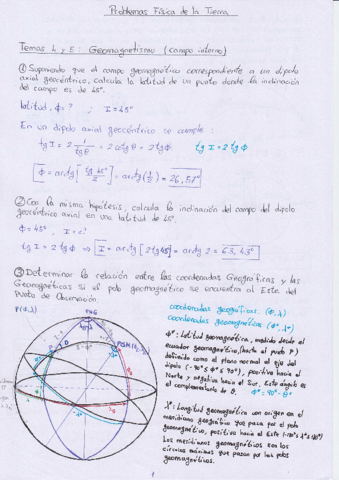 Problemas Física de la Tierra
Temas 4 y 5: Geomagnetismo (campo interno)
① Suponiendo que el campo geomagnético correspondiente a un dipolo
axial geocéntrico, calcula la latitud de un punto donde la inclinación
del campo es de 45°.
latitud, ϕ = ? ; I = 45°
En un dipolo axial geocéntrico se cumple:
tg I = 2 1/tg θ = 2 cotg θ = 2 tg ϕ tg I = 2 tg ϕ
ϕ = arctg [tg 45°/2] = arctg (1/2) = 26,57°
② Con la misma hipótesis, calcula la inclinación del campo del dipolo
geocéntrico axial en una latitud de 45°.
ϕ = 45° , I = ?
tg I = 2 tg ϕ ⇒ I = arctg [2 tg 45] = arctg 2 = 63,43°
③ Determinar la relación entre las coordenadas Geográficas y las
Geomagnéticas si el polo geomagnético se encuentra al Este del
Punto de Observación.
P(ϕ,λ)
PNG
coordenadas geográficas: (ϕ,λ)
coordenadas geomagnéticas: (ϕ*,λ*)
ϕ*: Latitud geomagnética, medida desde el
ecuador geomagnético (hasta el punto P)
definido como el plano normal al eje del
dipolo (-90° ≤ ϕ* ≤ 90°), positiva hacia el
Norte y negativa hacia el Sur. Este ángulo es
el complementario de θ. ϕ* = 90° - θ
λ*: Longitud geomagnética con origen en el
meridiano geográfico que pasa por el polo
geomagnético, positiva hacia el Este (-180° ≤ λ* ≤ 180°)
Los meridianos geomagnéticos son los
círculos máximos que pasan por los polos
geomagnéticos.
1